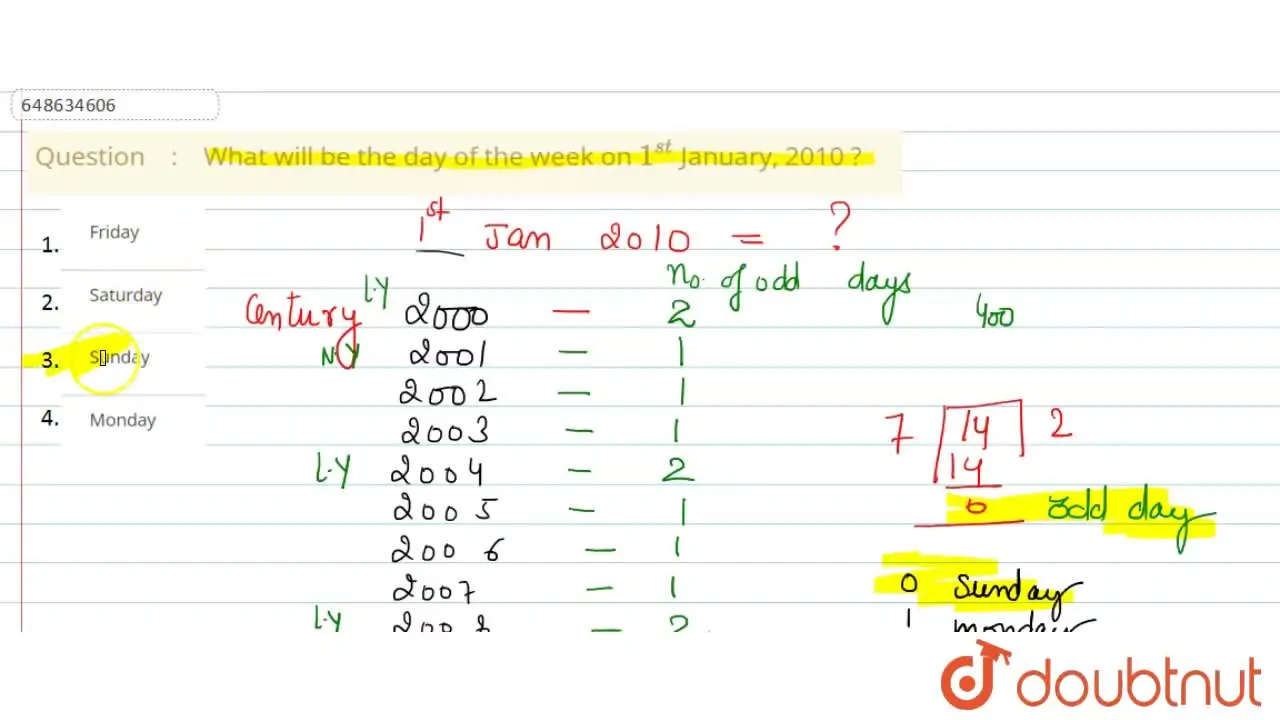 648634606
Question : What will be the day of the week on 1st January, 2010 ?
1. Friday
2. Saturday
3. Sunday
4. Monday
1st Jan 2010 = ?
no. of odd days
Century L.Y 2000 — 2 400
N.Y 2001 — 1
2002 — 1
2003 — 1
L.Y 2004 — 2
2005 — 1
2006 — 1
2007 — 1
L.Y 2008 — 2
7 14 2
14
0 odd day
0 Sunday
1 monday
doubtnut